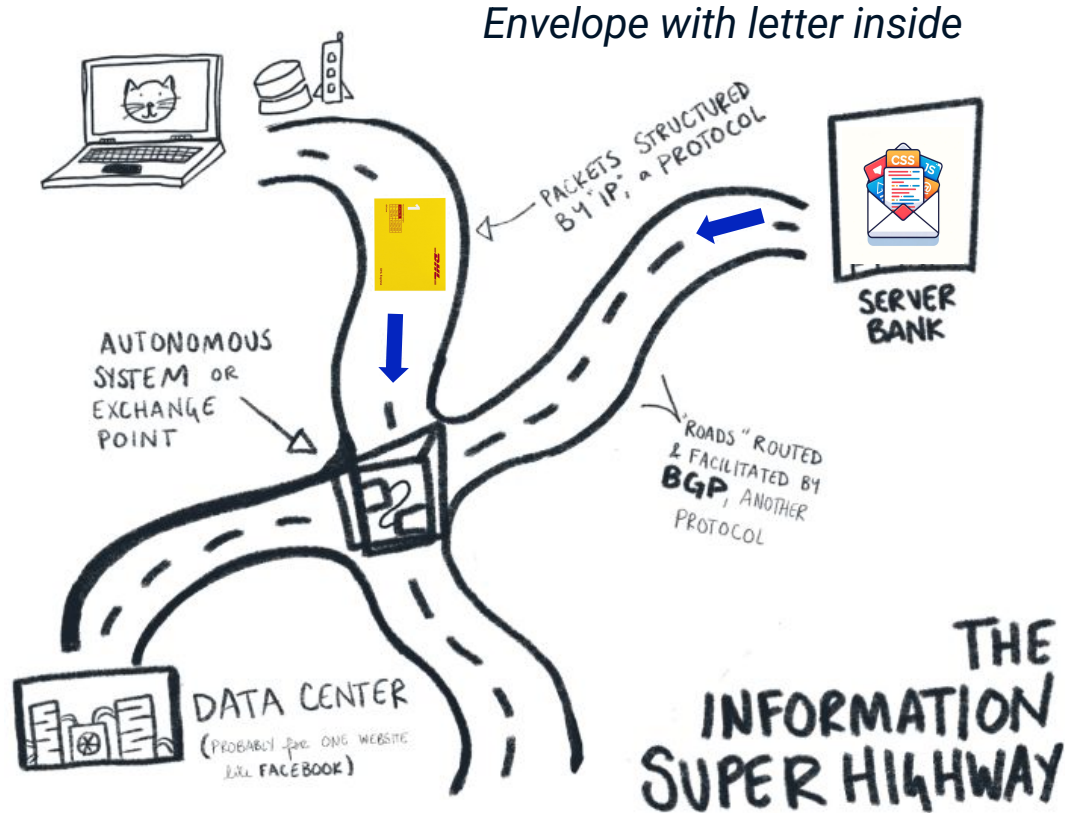 Envelope with letter inside
PACKETS STRUCTURED
BY "IP," a PROTOCOL
CSS
JS
@
1
DHL
SERVER
BANK
AUTONOMOUS
SYSTEM OR
EXCHANGE
POINT
"ROADS" ROUTED
& FACILITATED BY
BGP, ANOTHER
PROTOCOL
DATA CENTER
(PROBABLY for ONE WEBSITE
like FACEBOOK)
THE
INFORMATION
SUPER HIGHWAY